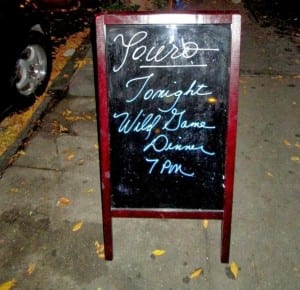 Youro
Tonight
Wild Game
Dinner
7 PM